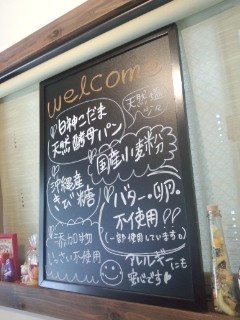 welcome
白神こだま
天然酵母パン
天然塩
国産小麦粉
沖縄産
きび糖
バター・卵・
不使用!!
(一部使用しています。)
添加物
いっさい不使用
アレルギーにも
安心です